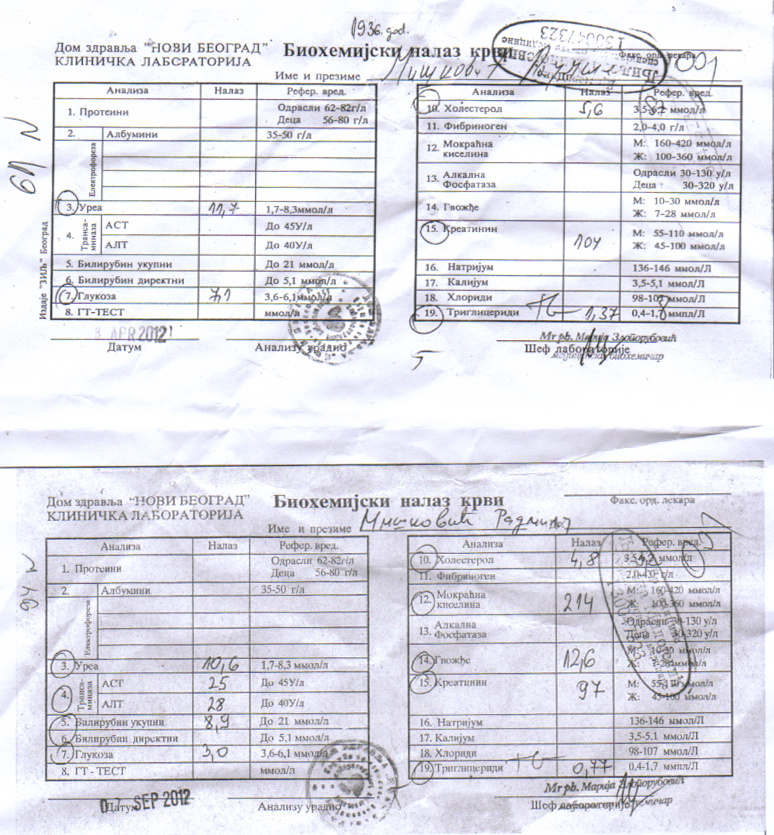 1936. god.
Дом здравља "НОВИ БЕОГРАД"
КЛИНИЧКА ЛАБОРАТОРИЈА
Биохемијски налаз крви
130047323
Факс. орд. лекара
Име и презиме
6П N
Издаје "ЗИЉ" Београд
Анализа Налаз Рефер. вред.
1. Протеини Одрасли 62-82г/л
Деца 56-80 г/л
2. Албумини 35-50 г/л
Електрофореза
3. Уреа 11,7 1,7-8,3ммол/л
4. Трансаминаза АСТ До 45У/л
АЛТ До 40У/л
5. Билирубин укупни До 21 ммол/л
6. Билирубин директни До 5,1 ммол/л
7. Глукоза 7,1 3,6-6,1ммол/л
8. ГТ-ТЕСТ ммол/л
Анализа Налаз Рефер. вред.
10. Холестерол 5,6 3,5-5,2 ммол/л
11. Фибриноген 2,0-4,0 г/л
12. Мокраћна киселина М: 160-420 ммол/л
Ж: 100-360 ммол/л
13. Алкална Фосфатаза Одрасли 30-130 у/л
Деца : 30-320 у/л
14. Гвожђе М: 10-30 ммол/л
Ж: 7-28 ммол/л
15. Креатинин 104 М: 55-110 ммол/л
Ж: 45-100 ммол/л
16. Натријум 136-146 ммол/Л
17. Калијум 3,5-5,1 ммол/Л
18. Хлориди 98-107 ммол/Л
19. Триглицериди 1,37 0,4-1,8 ммпл/Л
APR 2012
Датум
Анализу урадио
Mr ph. Марија Злопорубовић
Шеф лабораторије
медицински биохемичар
Дом здравља "НОВИ БЕОГРАД"
КЛИНИЧКА ЛАБОРАТОРИЈА
Биохемијски налаз крви
Факс. орд. лекара
Име и презиме
94 N
Анализа Налаз Рефер. вред.
1. Протеини Одрасли 62-82г/л
Деца 56-80 г/л
2. Албумини 35-50 г/л
Електрофореза
3. Уреа 10,6 1,7-8,3 ммол/л
4. Трансаминаза АСТ 25 До 45У/л
АЛТ 28 До 40У/л
5. Билирубин укупни 8,9 До 21 ммол/л
6. Билирубин директни До 5,1 ммол/л
7. Глукоза 3,0 3,6-6,1 ммол/л
8. ГТ - ТЕСТ ммол/л
Анализа Налаз Рефер. вред.
10. Холестерол 4,8 3,5-5,2 ммол/л
11. Фибриноген 2,0-4,0 г/л
12. Мокраћна киселина 214 М: 160-420 ммол/л
Ж: 100-360 ммол/л
13. Алкална Фосфатаза Одрасли 30-130 у/л
Деца 30-320 у/л
14. Гвожђе 12,6 М: 10-30 ммол/л
Ж: 7-28 ммол/л
15. Креатинин 97 М: 55-110 ммол/л
Ж: 45-100 ммол/л
16. Натријум 136-146 ммол/Л
17. Калијум 3,5-5,1 ммол/Л
18. Хлориди 98-107 ммол/Л
19. Триглицериди 0,77 0,4-1,7 ммпл/Л
SEP 2012
Датум
Анализу урадио
Mr ph. Марија Злопорубовић
Шеф лабораторије